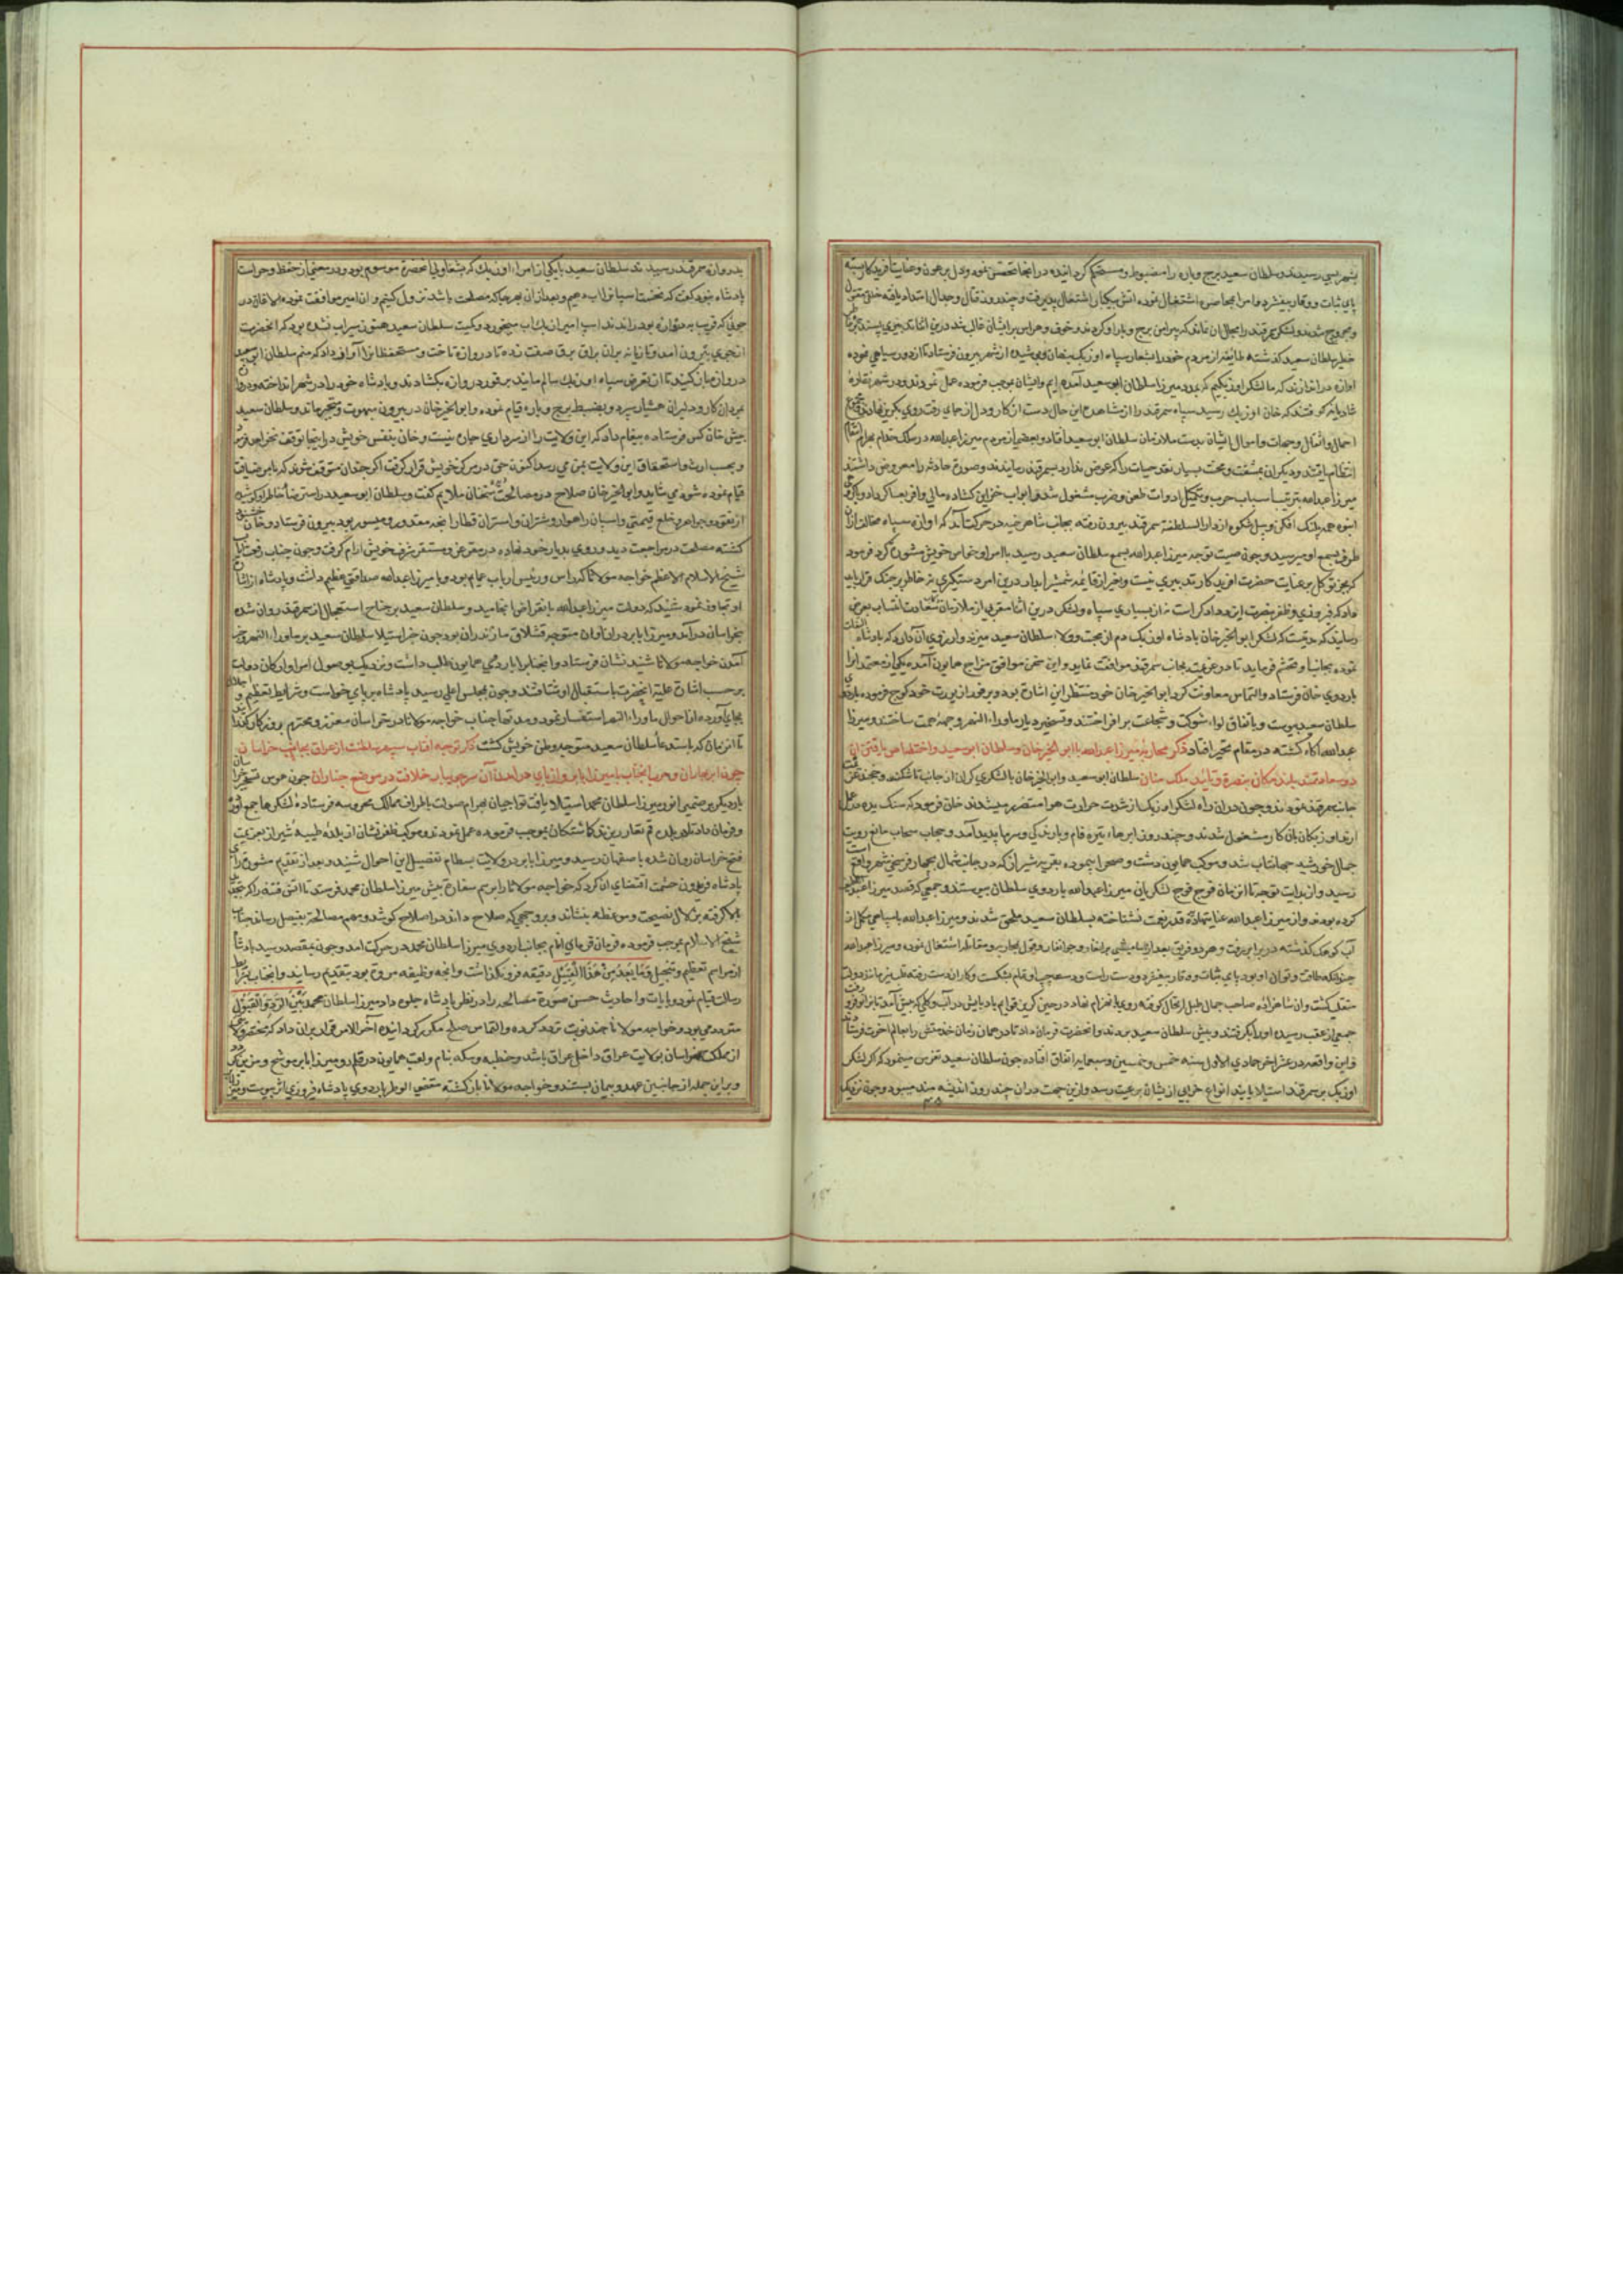 بشهر یسی رسیدند و سلطان سعید برج و باره را مضبوط و مستحکم کردانیده در انجا تحصن نمود و دل بر عون و عنایت آفریدکار بسته
پای ثبات و وقار بیفشرد و امرا بمحاصره اشتغال نموده آتش پیکار اشتعال پذیرفت و چند روز قتال و جدال امتداد یافته خلقی مقتول
و مجروح شدند و لشکر سمرقند را مجال آن نماند که پیرامن برج و بارو کردند و خوف و هراس بر ایشان غالب شد درین اثنا
خطیر سلطان سعید کذشته طایفه از مردم خود را بشعار سپاه اوزبک پنهان و پوشیده از شهر بیرون فرستاد تا از دور سیاهی نموده
اوازه در اندازند که ما لشکر اوزبکیم که بمدد میرزا سلطان ابو سعید آمده ایم و ایشان بموجب فرموده عمل نمودند و در شهر نقاره
شادیانه کوفتند که خان اوزبک رسید سپاه سمرقند را از مشاهده این حال دست از کار و دل از جای رفت روی بکریز نهادند
احمال و اثقال و جهات و اموال ایشان بدست ملازمان سلطان ابو سعید افتاد و بعضی از مردم میرزا عبدالله در سلک خدام
انتظام یافتند و دیکران بمشقت و محنت بسیار نقد حیات را که عوض ندارد بسمرقند رسانیدند و صورت حادثه را معروض داشتند
میرزا عبدالله بترتیب اسباب حرب و تکمیل ادوات طعن و ضرب مشغول شد و ابواب خزاین کشاده مالی وافر بعساکر داد و با کروهی
انبوه همه پلنک افکن و پیل شکوه از دار السلطنه سمرقند بیرون رفته بجانب شاهرخیه در حرکت آمد که اوازه سپاه مخالف از آن
طرف بسمع او میرسید و چون صیت توجه میرزا عبدالله بسمع سلطان سعید رسید با امرا و خواص خویش مشورت کرد فرمود
که بجز توکل بر عنایت حضرت آفریدکار تدبیری نیست و بغیر از قائمه شمشیر ابدار درین امر دستکیری نه خاطر بر جنک قرار باید
داد که فیروزی و ظفر بنصرت ایزد دادکر است نه از بسیاری سپاه و لشکر درین اثنا مقربی از ملازمان سعادت انتساب بعرض
رسانید که مدتیست که لشکر ابو الخیر خان پادشاه اوزبک دم از محبت و ولاء سلطان سعید میزند و ارزوی آن دارد که پادشاه التفات
نموده بجانب او تحشم فرماید تا در عزیمت بجانب سمرقند موافقت نماید و این سخن موافق مزاج همایون آمده یکی از معتمدانرا
باردوی خان فرستاد و التماس معاونت کرد ابو الخیر خان خود منتظر این اشارت بود و بر فور از یورت خود کوچ فرموده باردوی
سلطان سعید پیوست و باتفاق لواء شوکت و شجاعت بر افراختند و تسخیر دیار ماوراء النهر وجهه همت ساختند و میرزا
عبدالله آکاه کشته در مقام تحیر افتاد ذکر محاربه میرزا عبدالله با ابو الخیر خان و سلطان ابو سعید و اختصاص یافتن این
دو سعادتمند بلند مکان بنصرة و تأیید ملک منان سلطان ابو سعید و ابو الخیر خان با لشکری کران از جانب تاشکند و خجند عزیمت
جانب سمرقند نمودند و چون دران راه لشکر اوزبک از شدت حرارت هوا متضرر میشدند خان فرمود که سنک یده عمل
ارند و اوزبکان بان کار مشغول شدند و چند روز ابرهاء تیره فام و بارندکی و سرما پدید آمد و حجاب سحاب مانع رویت
جمال خورشید جهانتاب شد و موکب همایون دشت و صحرا پیموده بقریه شیراز که در جانب شمال بچهار فرسخی شهر واقع است
رسید و از بدایت توجه تا ان زمان فوج فوج لشکریان میرزا عبدالله باردوی سلطان پیوستند و جمعی که قصد میرزا عبداللطیف
کرده بودند و از میرزا عبدالله عنایتها دیده قدر نعمت نشناخته بسلطان سعید ملحق شدند و میرزا عبدالله با سپاهی بیکران
آب کوهک کذشته در برابر رفت و هر دو فریق بعد از یاسامیشی برانغار و جوانغار و قول بمحاربه و مقاتله اشتغال نمودند و میرزا عبدالله
چندانکه طاقت و توان او بود پای ثبات و وقار بیفشرد و دست راست و دست چپ او تمام بشکست و کار از دست رفته
منقلب کشت و ان شاهزاده صاحب جمال طبل ارتحال کوفته روی بانهزام نهاد در حین کریز قوایم بادپایش در آب و کلی که پیش آمد
جمعی از عقب رسیده او را بکرفتند و پیش سلطان سعید بردند و انحضرت فرمان داد تا در همان زمان خدمتش را بعالم آخرت فرستادند
و این واقعه در عشر اخر جمادی الاول سنه خمس و خمسین و ثمانمایه اتفاق افتاده چون سلطان سعید تفرس مینمود که اکر لشکر
اوزبک بر سمرقند استیلا یابند انواع خرابی از ایشان برعیت رسد و ازین جهت دران چند روز اندیشه مند میبود و چون نزدیک
بدروازه سمرقند رسیدند سلطان سعید با یکی از امراء اوزبک که بشغاولی انحضرة موسوم بود و در معنی از حفظ و حراست
پادشاه نبود کفت که نخست اسپانرا اب دهیم و بعد از ان بهر جا که مصلحت باشد نزول کنیم و ان امیر موافقت نموده
جوئی که قریب به دروازه بود راندند اسپ امیر اوزبک اب میخورد و کمیت سلطان سعید هنوز سیراب نشده بود که انحضرت
از جوی بیرون آمد و تازیانه بران براق برق صفت زده تا دروازه تاخت و مستحفظانرا آواز داد که منم سلطان ابو سعید
دروازه باز کنید تا از تعرض سپاه اوزبک سالم مانید بر فور دروازه بکشادند و پادشاه خود را در شهر انداخته
بمردان کار و دلیران هشیار سپرد و بضبط برج و باره قیام نموده و ابو الخیر خان در بیرون مبهوت و متحیر ماند و سلطان سعید
پیش خان کس فرستاده پیغام داد که این ولایت را از سرداری چاره نیست و خان بنفس خویش در اینجا توقف نخواهد فرمود
و بحسب ارث و استحقاق این ولایت بمن می رسد اکنون حق در مرکز خویش قرار کرفت اکر چندان متوقف شوید که بامر ضیافت
قیام نموده شود می شاید و ابو الخیر خان صلاح در مصالحه دیده سخنان ملایم کفت و سلطان ابو سعید در استرضاء خاطر او کوشیده
از نقود و جواهر و خلع قیمتی و اسبان راهوار و شتران و استران قطار انچه مقدور و میسور بود بیرون فرستاد و خان خشنود
کشته مصلحت در مراجعت دید و روی بدیار خود نهاده در مقر عز و مستقر شرف خویش ارام کرفت و چون جناب رفعت مآب
شیخ الاسلام الاعظم خواجه مولانا که راس و رئیس ارباب عمایم بود و با میرزا عبدالله صداقتی عظیم داشت و پادشاه از ایشان
او تجاوز نمود شنید که دولت میرزا عبدالله بانقراض انجامید و سلطان سعید بر جناح استعجال از سمرقند روان شده
بخراسان در آمد و میرزا بابر دران اوان متوجه قشلاق مازندران بود چون خبر استیلا سلطان سعید بر ماوراء النهر و
آمدن خواجه مولانا شنید نشان فرستاد و انجنابرا باردوی همایون طلب داشت و نزدیک بوصول امرا و ارکان دولت
بر حسب اشارت علیه انحضرت باستقبال او شتافتند و چون بمجلس اعلی رسید پادشاه بر پای خواست و شرایط تعظیم و اجلال
بجای آورده از احوال ماوراء النهر استفسار نمود و مدتها جناب خواجه مولانا در خراسان معزز و محترم روزکار کذرانید
تا آنزمان که باستدعاء سلطان سعید متوجه وطن خویش کشت ذکر توجه افتاب سپهر سلطنت از عراق بجانب خراسان
چون ابر بهاران و حرب انجناب با میرزا بابر و از پای در آمدن آن سرو جویبار خلافت در موضع چناران چون هوس تسخیر خراسان
بار دیکر بر ضمیر انور میرزا سلطان محمد استیلا یافت تواجیان بهرام صولت باطراف ممالک محروسه فرستاده لشکرها جمع آورد
و فرمان داد تا در بلده قم نقاره زنند کماشتکان بموجب فرموده عمل نمودند و موکب ظفر نشان از بلده طیبه شیراز بعزیمت
فتح خراسان روان شده باصفهان رسید و میرزا بابر در ولایت بسطام تفصیل این احوال شنید و بعد از تقدیم مشورت رای
پادشاه فریدون حشمت اقتضای ان کرد که خواجه مولانا را برسم سفارت پیش میرزا سلطان محمد فرستد تا اتش فتنه را که
بالا کرفته بزلال نصیحت و موعظه بنشاند و بر وجهی که صلاح داند در اصلاح کوشد و مهم مصالحه بفیصل رساند جناب
شیخ الاسلام بموجب فرموده فرمان فرمای انام بجانب اردوی میرزا سلطان محمد در حرکت امد و چون بمقصد رسید پادشاه
از مراسم تعظیم و تبجیل وَمَا یُعَدُّ مِنْ هَذَا الْقَبِیلِ دقیقه فرو نکذاشت و انچه وظیفه مروة بود بتقدیم رسانید و انجناب بشرایط
رسالت قیام نمود و بایات و احادیث حسن صورة مصالحه را در نظر پادشاه جلوه داد میرزا سلطان محمد بَیْنَ الرَّدِ وَالْقَبُوْلِ
متردد می بود و خواجه مولانا چند نوبت تردد کرده و التماس صلح مکرر کردانیده آخر الامر قرار بران داد که
از مملکت خراسان بولایت عراق داخل عراق باشد و خطبه و سکه بنام و لقب همایون در قلمرو میرزا بابر موشح و مزین
و بر این جمله از جانبین عهد و پیمان بستند و خواجه مولانا باز کشته مقضی الوطر باردوی پادشاه فیروزی اثر پیوست